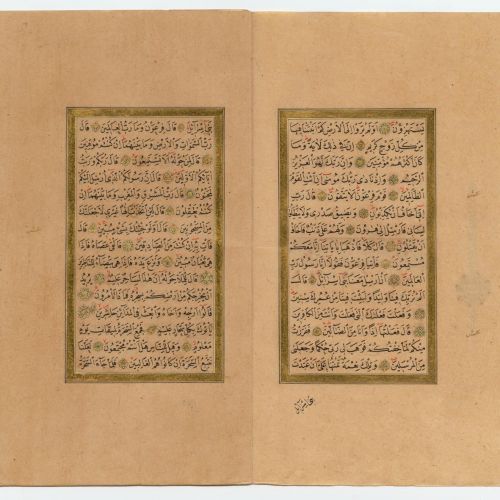 يَسْتَهْزِؤُنَ اَوَلَمْ يَرَوْا اِلَى الْاَرْضِ كَمْ اَنْبَتْنَا فِيهَا
مِنْ كُلِّ زَوْجٍ كَرِيمٍ اِنَّ فِي ذٰلِكَ لَاٰيَةً وَمَا
كَانَ اَكْثَرُهُمْ مُؤْمِنِينَ وَاِنَّ رَبَّكَ لَهُوَ الْعَزِيزُ
الرَّحِيمُ وَاِذْ نَادٰى رَبُّكَ مُوسٰى اَنِ ائْتِ الْقَوْمَ
الظَّالِمِينَ قَوْمَ فِرْعَوْنَ اَلَا يَتَّقُونَ قَالَ رَبِّ
اِنِّي اَخَافُ اَنْ يُكَذِّبُونِ وَيَضِيقُ صَدْرِي وَلَا يَنْطَلِقُ
لِسَانِي فَاَرْسِلْ اِلٰى هٰرُونَ وَلَهُمْ عَلَيَّ ذَنْبٌ فَاَخَافُ
اَنْ يَقْتُلُونِ قَالَ كَلَّا فَاذْهَبَا بِاٰيَاتِنَا اِنَّا مَعَكُمْ
مُسْتَمِعُونَ فَأْتِيَا فِرْعَوْنَ فَقُولَا اِنَّا رَسُولُ رَبِّ
الْعَالَمِينَ اَنْ اَرْسِلْ مَعَنَا بَنِي اِسْرَائِيلَ قَالَ
اَلَمْ نُرَبِّكَ فِينَا وَلِيدًا وَلَبِثْتَ فِينَا مِنْ عُمُرِكَ سِنِينَ
وَفَعَلْتَ فَعْلَتَكَ الَّتِي فَعَلْتَ وَاَنْتَ مِنَ الْكَافِرِينَ
قَالَ فَعَلْتُهَا اِذًا وَاَنَا مِنَ الضَّالِّينَ فَفَرَرْتُ
مِنْكُمْ لَمَّا خِفْتُكُمْ فَوَهَبَ لِي رَبِّي حُكْمًا وَجَعَلَنِي
مِنَ الْمُرْسَلِينَ وَتِلْكَ نِعْمَةٌ تَمُنُّهَا عَلَيَّ اَنْ عَبَّدْتَ
بَنِي اِسْرَائِيلَ قَالَ فِرْعَوْنُ وَمَا رَبُّ الْعَالَمِينَ قَالَ
رَبُّ السَّمٰوَاتِ وَالْاَرْضِ وَمَا بَيْنَهُمَا اِنْ كُنْتُمْ مُوقِنِينَ
قَالَ لِمَنْ حَوْلَهُ اَلَا تَسْتَمِعُونَ قَالَ رَبُّكُمْ وَرَبُّ
اٰبَائِكُمُ الْاَوَّلِينَ قَالَ اِنَّ رَسُولَكُمُ الَّذِي اُرْسِلَ اِلَيْكُمْ
لَمَجْنُونٌ قَالَ رَبُّ الْمَشْرِقِ وَالْمَغْرِبِ وَمَا بَيْنَهُمَا اِنْ
كُنْتُمْ تَعْقِلُونَ قَالَ لَئِنِ اتَّخَذْتَ اِلٰهًا غَيْرِي لَاَجْعَلَنَّكَ
مِنَ الْمَسْجُونِينَ قَالَ اَوَلَوْ جِئْتُكَ بِشَيْءٍ مُبِينٍ قَالَ
فَأْتِ بِهِ اِنْ كُنْتَ مِنَ الصَّادِقِينَ فَاَلْقٰى عَصَاهُ فَاِذَا
هِيَ ثُعْبَانٌ مُبِينٌ وَنَزَعَ يَدَهُ فَاِذَا هِيَ بَيْضَاءُ لِلنَّاظِرِينَ
قَالَ لِلْمَلَاِ حَوْلَهُ اِنَّ هٰذَا لَسَاحِرٌ عَلِيمٌ يُرِيدُ
اَنْ يُخْرِجَكُمْ مِنْ اَرْضِكُمْ بِسِحْرِهِ فَمَاذَا تَأْمُرُونَ
قَالُوا اَرْجِهْ وَاَخَاهُ وَابْعَثْ فِي الْمَدَائِنِ حَاشِرِينَ
يَأْتُوكَ بِكُلِّ سَحَّارٍ عَلِيمٍ فَجُمِعَ السَّحَرَةُ لِمِيقَاتِ يَوْمٍ
مَعْلُومٍ وَقِيلَ لِلنَّاسِ هَلْ اَنْتُمْ مُجْتَمِعُونَ لَعَلَّنَا
نَتَّبِعُ السَّحَرَةَ اِنْ كَانُوا هُمُ الْغَالِبِينَ فَلَمَّا جَاءَ السَّحَرَةُ